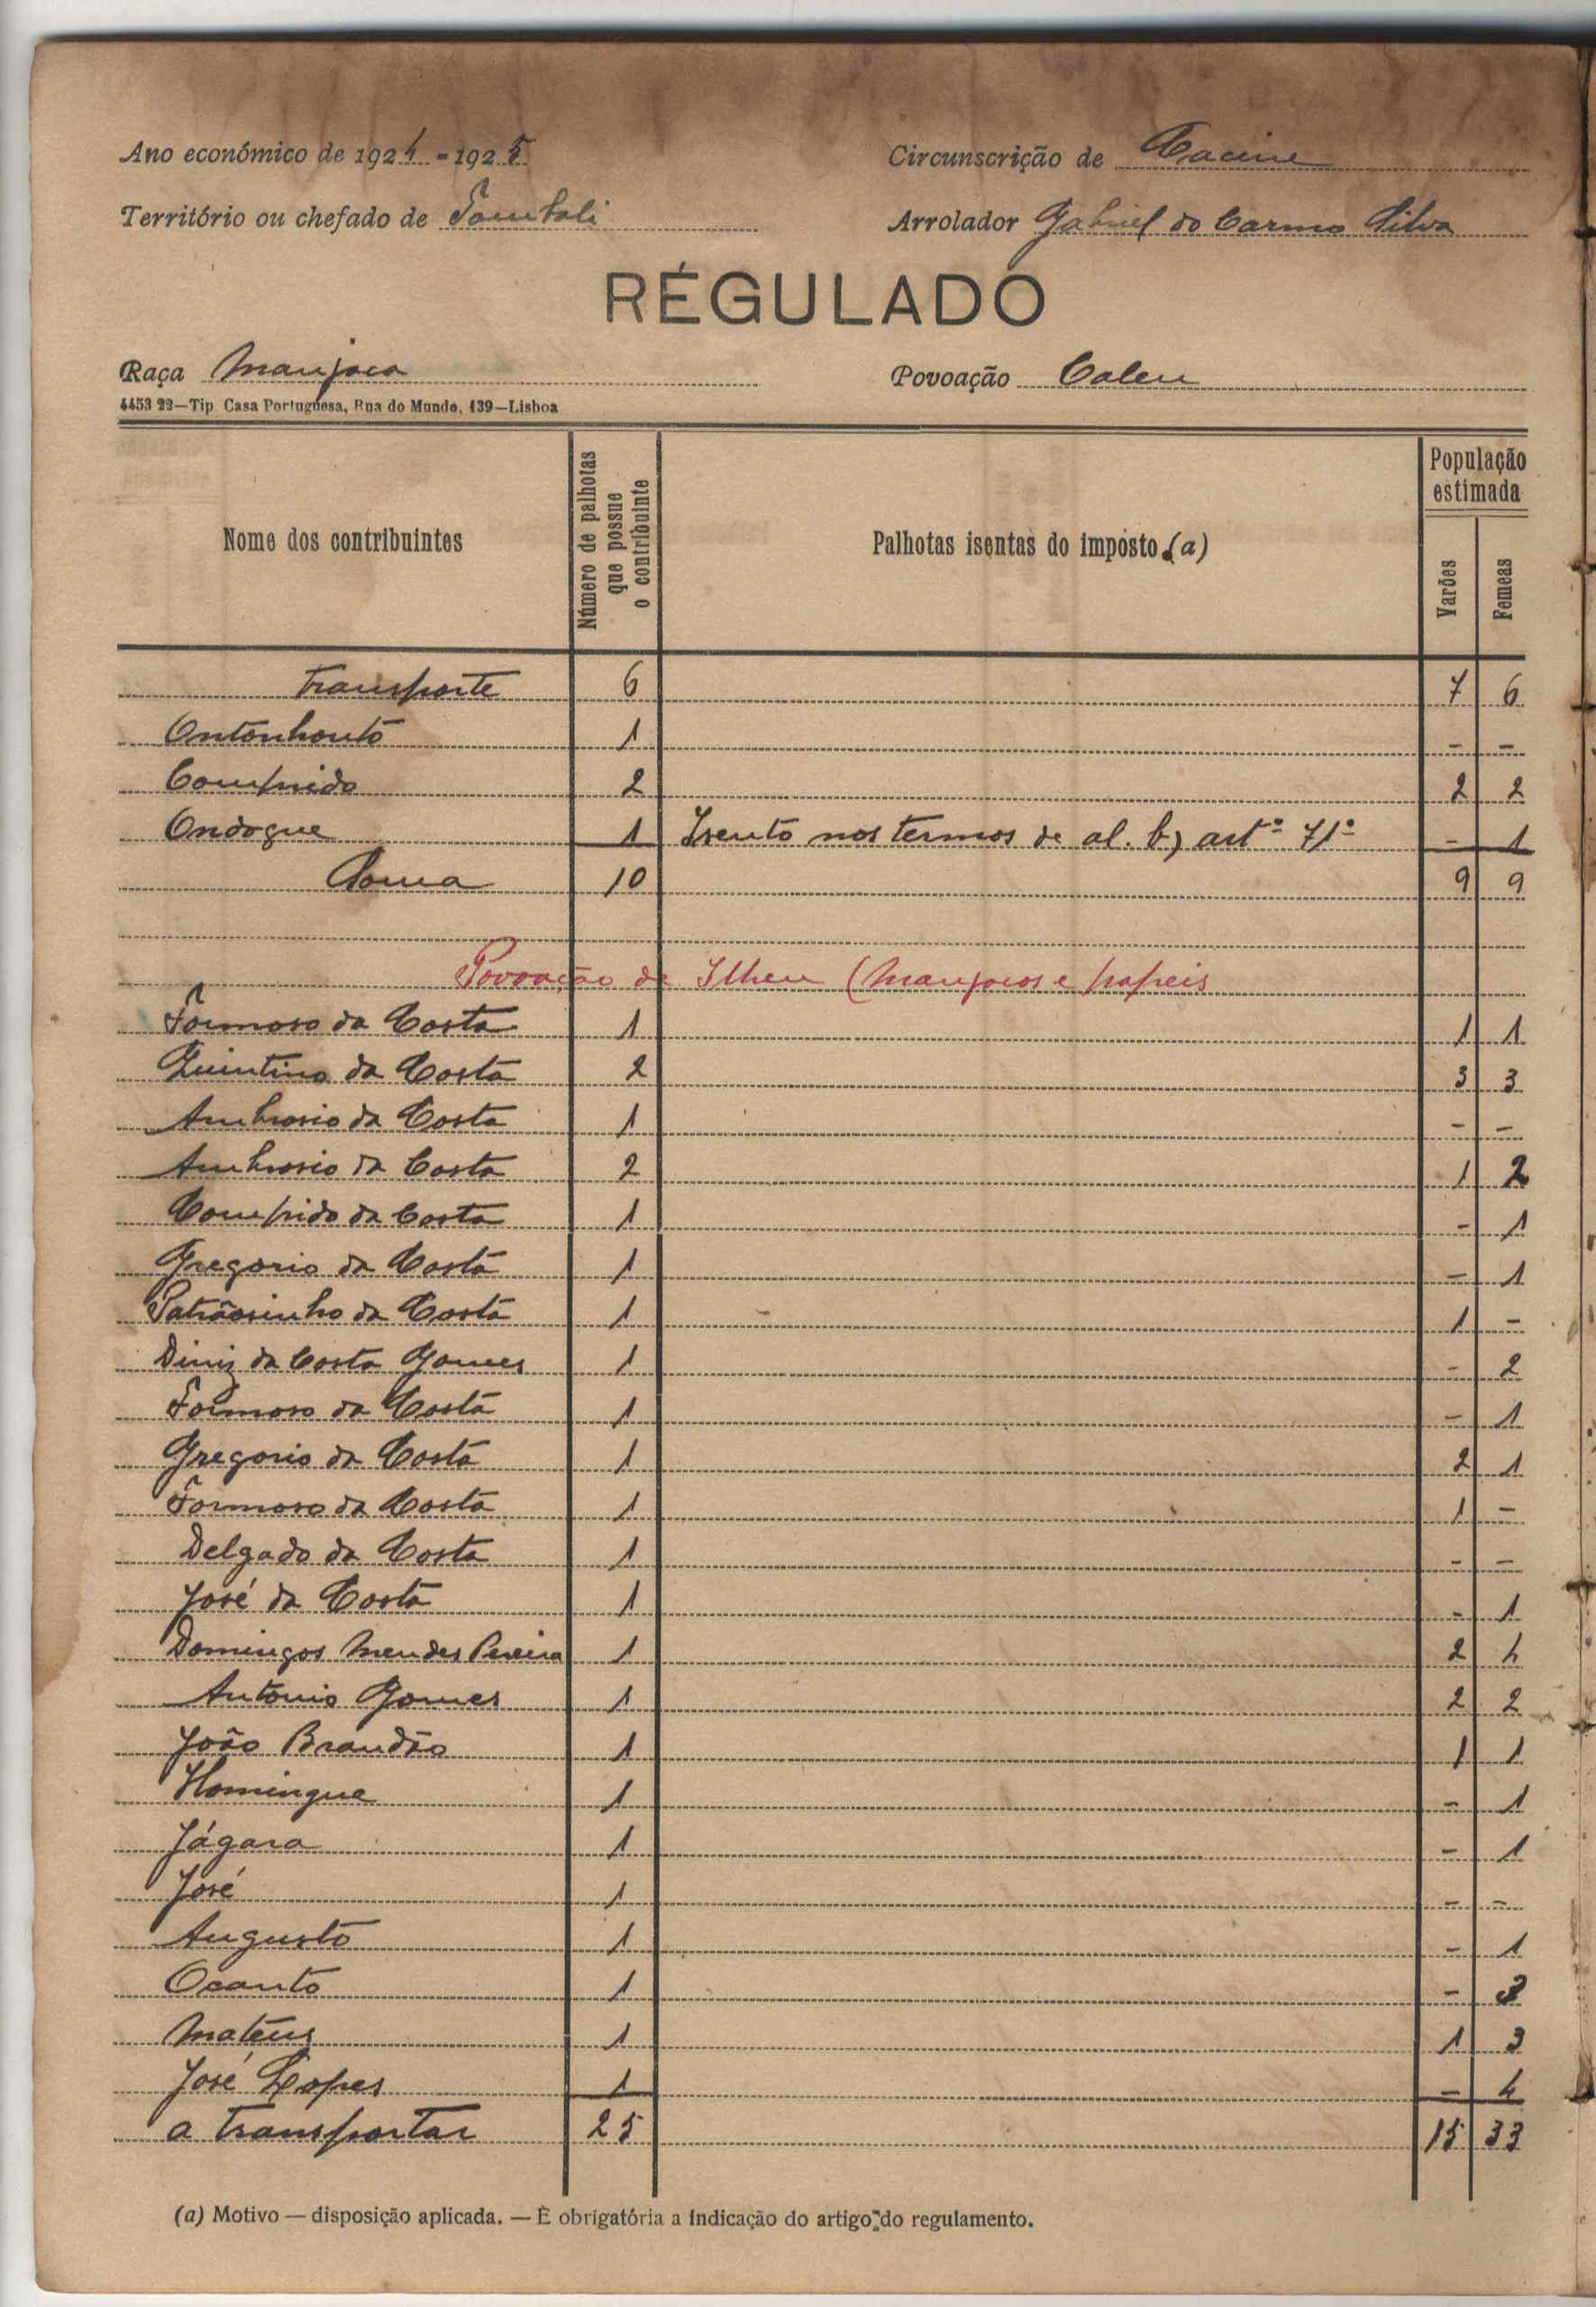 Ano económico de 1924-1925
Circunscrição de Cacine
Território ou chefado de Tombali
Arrolador Gabriel do Carmo Silva
RÉGULADO
Raça Manjaca
Povoação Caleu
4453 22—Tip. Casa Portuguesa, Rua do Mundo, 139—Lisboa
Nome dos contribuintes
Número de palhotas que possue o contribuinte
Palhotas isentas do imposto (a)
População estimada
Varões
Femeas
Transporte 6 7 6
Ontonhouto 1 - -
Comprido 2 2 2
Ondogue 1 Isento nos termos de al. b) artº 71º - 1
Soma 10 9 9
Povoação de Ilheu (Manjacos e papeis
Formoso da Costa 1 1 1
Quintino da Costa 2 3 3
Ambrosio da Costa 1 - -
Ambrosio da Costa 2 1 2
Comprido da Costa 1 - 1
Gregorio da Costa 1 - 1
Patrãosinho da Costa 1 1 -
Diniz da Costa Gomes 1 - 2
Formoso da Costa 1 - 1
Gregorio da Costa 1 2 1
Formoso da Costa 1 1 -
Delgado da Costa 1 - -
José da Costa 1 - 1
Domingos Mendes Pereira 1 2 4
Antonio Gomes 1 2 2
João Brandão 1 1 1
Homingue 1 - 1
Jágara 1 - 1
José 1 - -
Augusto 1 - 1
Ocanto 1 - 3
Matéus 1 1 3
José Lopes 1 - 4
a transportar 25 15 33
(a) Motivo — disposição aplicada. — È obrigatória a indicação do artigo do regulamento.